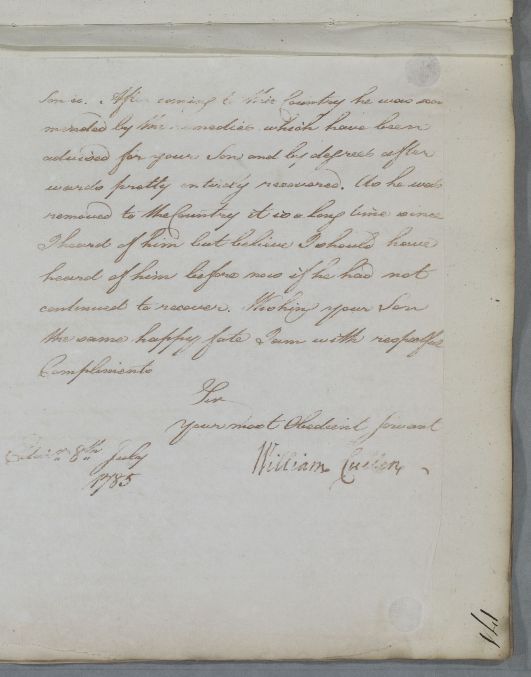 Son is. After coming to this Country he was soon
mended by the remedies which have been
advised for your Son and by degrees after
wards pretty entirely recovered. As he was
removed to the Country it is a long time since
I heard of him but believe I should have
heard of him before now if he had not
continued to recover. Wishing your Son
the same happy fate I am with respectful
Compliments
Sir
your most Obedient Servant
William Cullen
Edinr. 8th July
1785
141